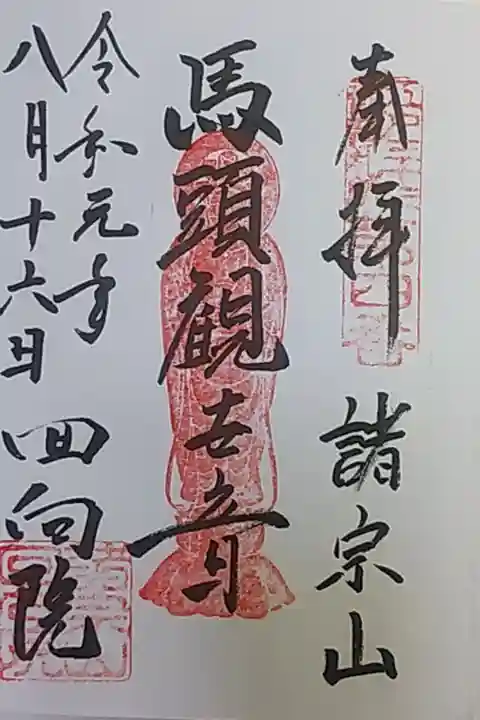 奉拝 諸宗山
馬頭観世音
令和元年
八月十六日 回向院